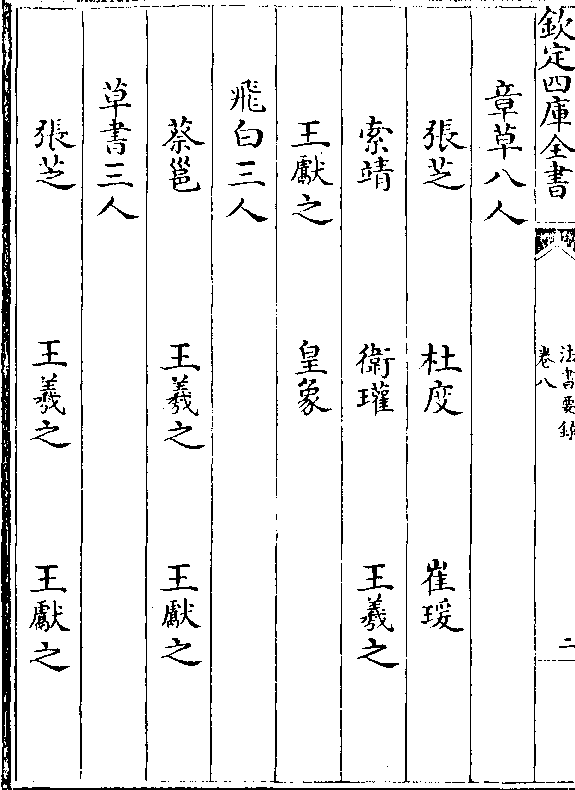 欽定四庫全書
法書要錄
卷八
二
章草八人
張芝 杜度 崔瑗
索靖 衛瓘 王羲之
王獻之 皇象
飛白三人
蔡邕 王羲之 王獻之
草書三人
張芝 王羲之 王獻之